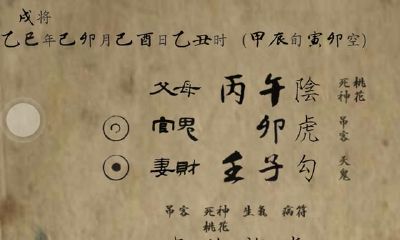 戌将
乙巳年己卯月己酉日乙丑时 (甲辰旬寅卯空)
父母 丙 午 陰 死神 桃花
官鬼 卯 虎 吊客
妻財 壬 子 勾 天鬼
吊客 死神 生氣 病符
桃花